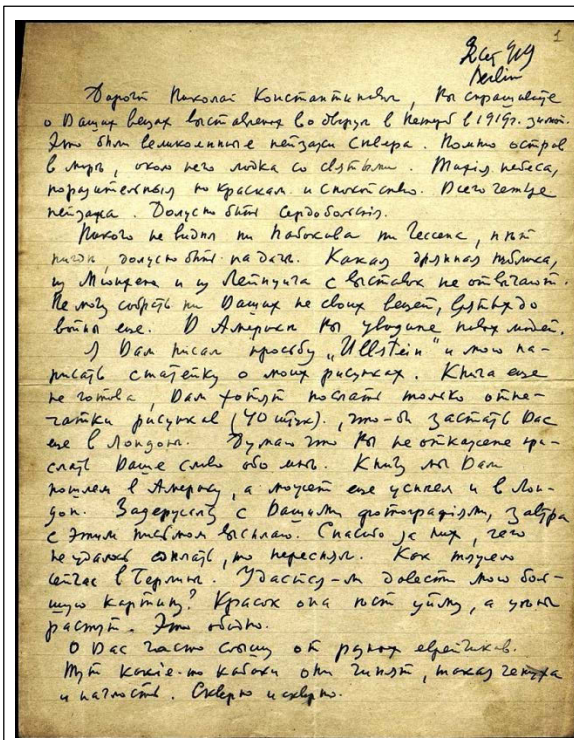 1
Berlin
Дорогой Николай Константинович, Вы спрашиваете
о Ваших вещах выставленных во дворце в 1919г. зимой.
Это были великолепные пейзажи севера. Помню остров
в море, около него лодка со святыми. небеса,
поразительныя по краскам и спокойствию. Всего четыре
пейзажа. Должно быть
Никого не видел ни Набокова ни Гессена, нет
нигде, должно быть на даче. Какая дрянная публика,
из Мюнхена и из Лейпцига с выставок не отвечают.
Не могу собрать ни Ваших не своих вещей, взятых до
войны еще. В Америке Вы увидите новых людей.
Я Вам писал просьбу „Ullstein" и мою на-
писать статейку о моих рисунках. Книга еще
не готова, Вам хотят послать только отпе-
чатки рисунков (40 штук), что-бы застать Вас
еще в Лондоне. Думаю что Вы не откажете при-
слать Ваше слово обо мне. Книгу мы Вам
пошлем в Америку, а может еще успеем и в Лон-
дон. Задержался с Вашими фотографиями, завтра
с этим письмом высылаю. Спасибо за них, чего
не удалось, то переснял. Как
сейчас в Берлине. Удастся-ли довести мою боль-
шую картину? Красок она ест уйму, а цены
растут. Это обидно.
О Вас часто слышу от разных
Тут какие-то они чинят, такая чепуха
и наглость. Скверно и скверно.